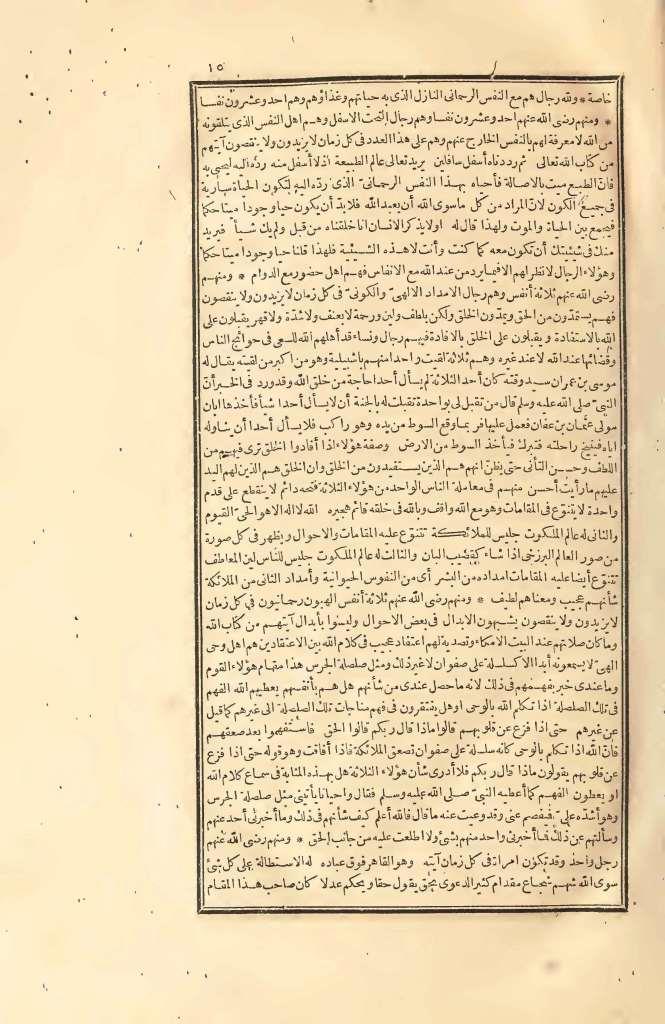 ١٥
خاصة * ولله رجال هم مع النفس الرحمانى النازل الذى به حياتهم وغذاؤهم وهم احد وعشرون نفسا
* ومنهم رضى الله عنهم احد وعشرون نفسا وهم رجال التحت الاسفل وهم اهل النفس الذى يتلقونه
من الله لا معرفة لهم بالنفس الخارج عنهم وهم على هذا العدد فى كل زمان لا يزيدون ولا ينقصون آيتهم
من كتاب الله تعالى ثم رددناه أسفل سافلين يريد تعالى عالم الطبيعة اذ لا أسفل منه رده اليه ليحيى به
فان الطبيع ميت بالاصالة فأحياه بهذا النفس الرحمانى الذى رده اليه لتكون الحياة سارية
فى جميع الكون لان المراد من كل ما سوى الله أن يعبد الله فلا بد أن يكون حيا وجودا ميتا حكما
فيجمع بين الحياة والموت ولهذا قال له اولا يذكر الانسان انا خلقناه من قبل ولم يك شيأ فيريد
منك فى شيئيتك أن تكون معه كما كنت وأنت لا هذه الشيئية فلهذا قلنا حيا وجودا ميتا حكما
وهؤلاء الرجال لا نظر لهم الا فيما يرد من عند الله مع الانفاس فهم اهل حضور مع الدوام * ومنهم
رضى الله عنهم ثلاثة أنفس وهم رجال الامداد الالهى والكونى فى كل زمان لا يزيدون ولا ينقصون
فهم يستمدون من الحق ويمدون الخلق ولكن بلطف ولين ورحمة لا بعنف ولا شدة ولا قهر يقبلون على
الله بالاستفادة ويقبلون على الخلق بالافادة فيهم رجال ونساء قد أهلهم الله للسعى فى حوائج الناس
وقضائها عند الله لا عند غيره وهم ثلاثة لقيت واحدا منهم باشبيلية وهو من اكبر من لقيته يقال له
موسى بن عمران سيد وقته كان أحد الثلاثة لم يسأل أحدا حاجة من خلق الله وقد ورد فى الخبر أن
النبى صلى الله عليه وسلم قال من تقبل لى بواحدة تقبلت له بالجنة أن لا يسأل أحدا شيأ فأخذها ثوبان
مولى عثمان بن عفان فعمل عليها فربما وقع السوط من يده وهو راكب فلا يسأل أحدا أن يناوله
اياه فينيخ راحلته فتبرك فيأخذ السوط من الارض وصفة هؤلاء اذا أفادوا الخلق ترى فيهم من
اللطف وحسن التأنى حتى يظن انهم هم الذين يستفيدون من الخلق وان الخلق هم الذين لهم اليد
عليهم ما رأيت أحسن منهم فى معاملة الناس الواحد من هؤلاء الثلاثة فتحه دائم لا ينقطع على قدم
واحدة لا يتنوع فى المقامات وهو مع الله واقف وبالله فى خلقه قائم هجيره الله لا اله الا هو الحى القيوم
والثانى له عالم الملكوت جليس للملائكة تتنوع عليه المقامات والاحوال ويظهر فى كل صورة
من صور العالم البرزخى اذا شاء كقضيب البان والثالث له عالم الملكوت جليس للناس لين المعاطف
تتنوع أيضا عليه المقامات امداده من البشر أى من النفوس الحيوانية وأمداد الثانى من الملائكة
شأنهم عجيب ومعناهم لطيف * ومنهم رضى الله عنهم ثلاثة أنفس الهيون رحمانيون فى كل زمان
لا يزيدون ولا ينقصون يشبهون الابدال فى بعض الاحوال وليسوا بأبدال آيتهم من كتاب الله
وما كان صلاتهم عند البيت الا مكاء وتصدية لهم اعتقاد عجيب فى كلام الله بين الاعتقادين هم اهل وحى
الهى لا يسمعونه أبدا الا كسلسلة على صفوان لا غير ذلك ومثل صلصلة الجرس هذا مقام هؤلاء القوم
وما عندى خبر بفهمهم فى ذلك لانه ما حصل عندى من شأنهم هل هم بأنفسهم يعطيهم الله الفهم
فى تلك الصلصلة اذا تكلم الله بالوحى او هل يفتقرون فى فهم ما جاءت تلك الصلصلة الى غيرهم كما قيل
عن غيرهم حتى اذا فزع عن قلوبهم قالوا ماذا قال ربكم قالوا الحق فاستفهموا بعد صعقهم
فان الله اذا تكلم بالوحى كأنه سلسلة على صفوان تصعق الملائكة فاذا أفاقت وهو قوله حتى اذا فزع
عن قلوبهم يقولون ماذا قال ربكم فلا أدرى شأن هؤلاء الثلاثة هل بهذه المثابة فى سماع كلام الله
او يعطون الفهم كما أعطيه النبى صلى الله عليه وسلم فقال واحيانا يأتينى مثل صلصلة الجرس
وهو أشده على فيفصم عنى وقد وعيت عنه ما قال فالله أعلم كيف شأنهم فى ذلك وما أخبرنى أحد عنهم
وسألتهم عن ذلك فما أخبرنى واحد منهم بشئ ولا اطلعت عليه من جانب الحق * ومنهم رضى الله عنهم
رجل واحد وقد تكون امرأة فى كل زمان آيته وهو القاهر فوق عباده له الاستطالة على كل شئ
سوى الله شهم شجاع مقدام كثير الدعوى بحق يقول حقا ويحكم عدلا كان صاحب هذا المقام